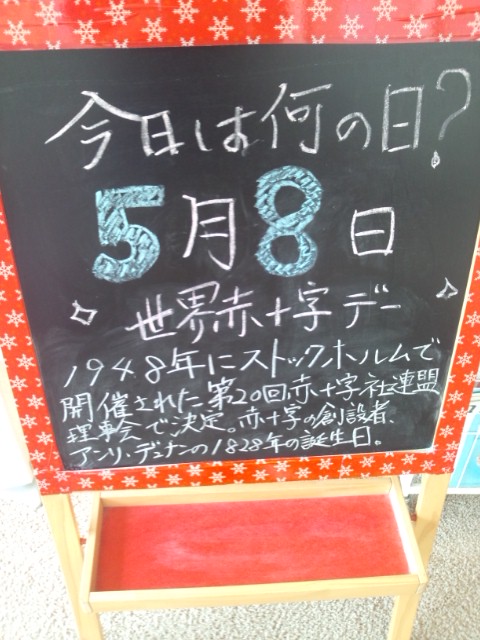 今日は何の日?
5月8日
世界赤十字デー
1948年にストックホルムで
開催された第20回赤十字社連盟
理事会で決定。赤十字の創設者、
アンリ・デュナンの1828年の誕生日。